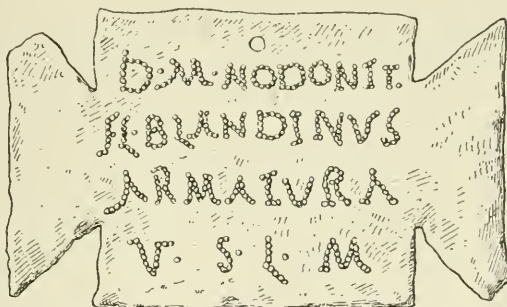 D·M·NODONIT.
FL·BLANDINVS
ARMATVRA
V·S·L·M